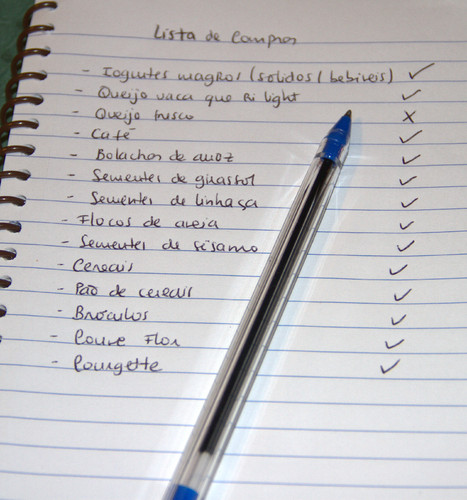 Lista de Compras
- Iogurtes magros (solidos / bebiveis) ✓
- Queijo vaca que ri light ✓
- Queijo fresco ✗
- Café ✓
- Bolachas de arroz ✓
- Sementes de girassol ✓
- Sementes de linhaça ✓
- Flocos de aveia ✓
- Sementes de sésamo ✓
- Cereais ✓
- Pão de cereais ✓
- Bróculos ✓
- Couve Flor ✓
- Courgette ✓